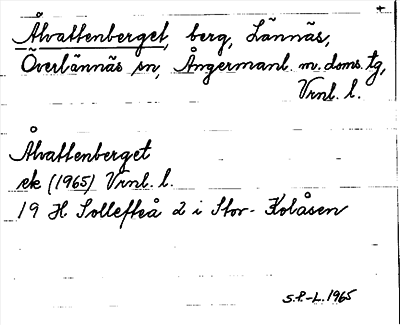 Ålvattenberget, berg, Lännäs,
Överlännäs sn, Ångermanl. m. doms. tg,
Vrnl. l.
Ålvattenberget
ek (1965) Vrnl. l.
19 H Sollefteå 2 i Stor-Kolåsen
S.P.-L. 1965